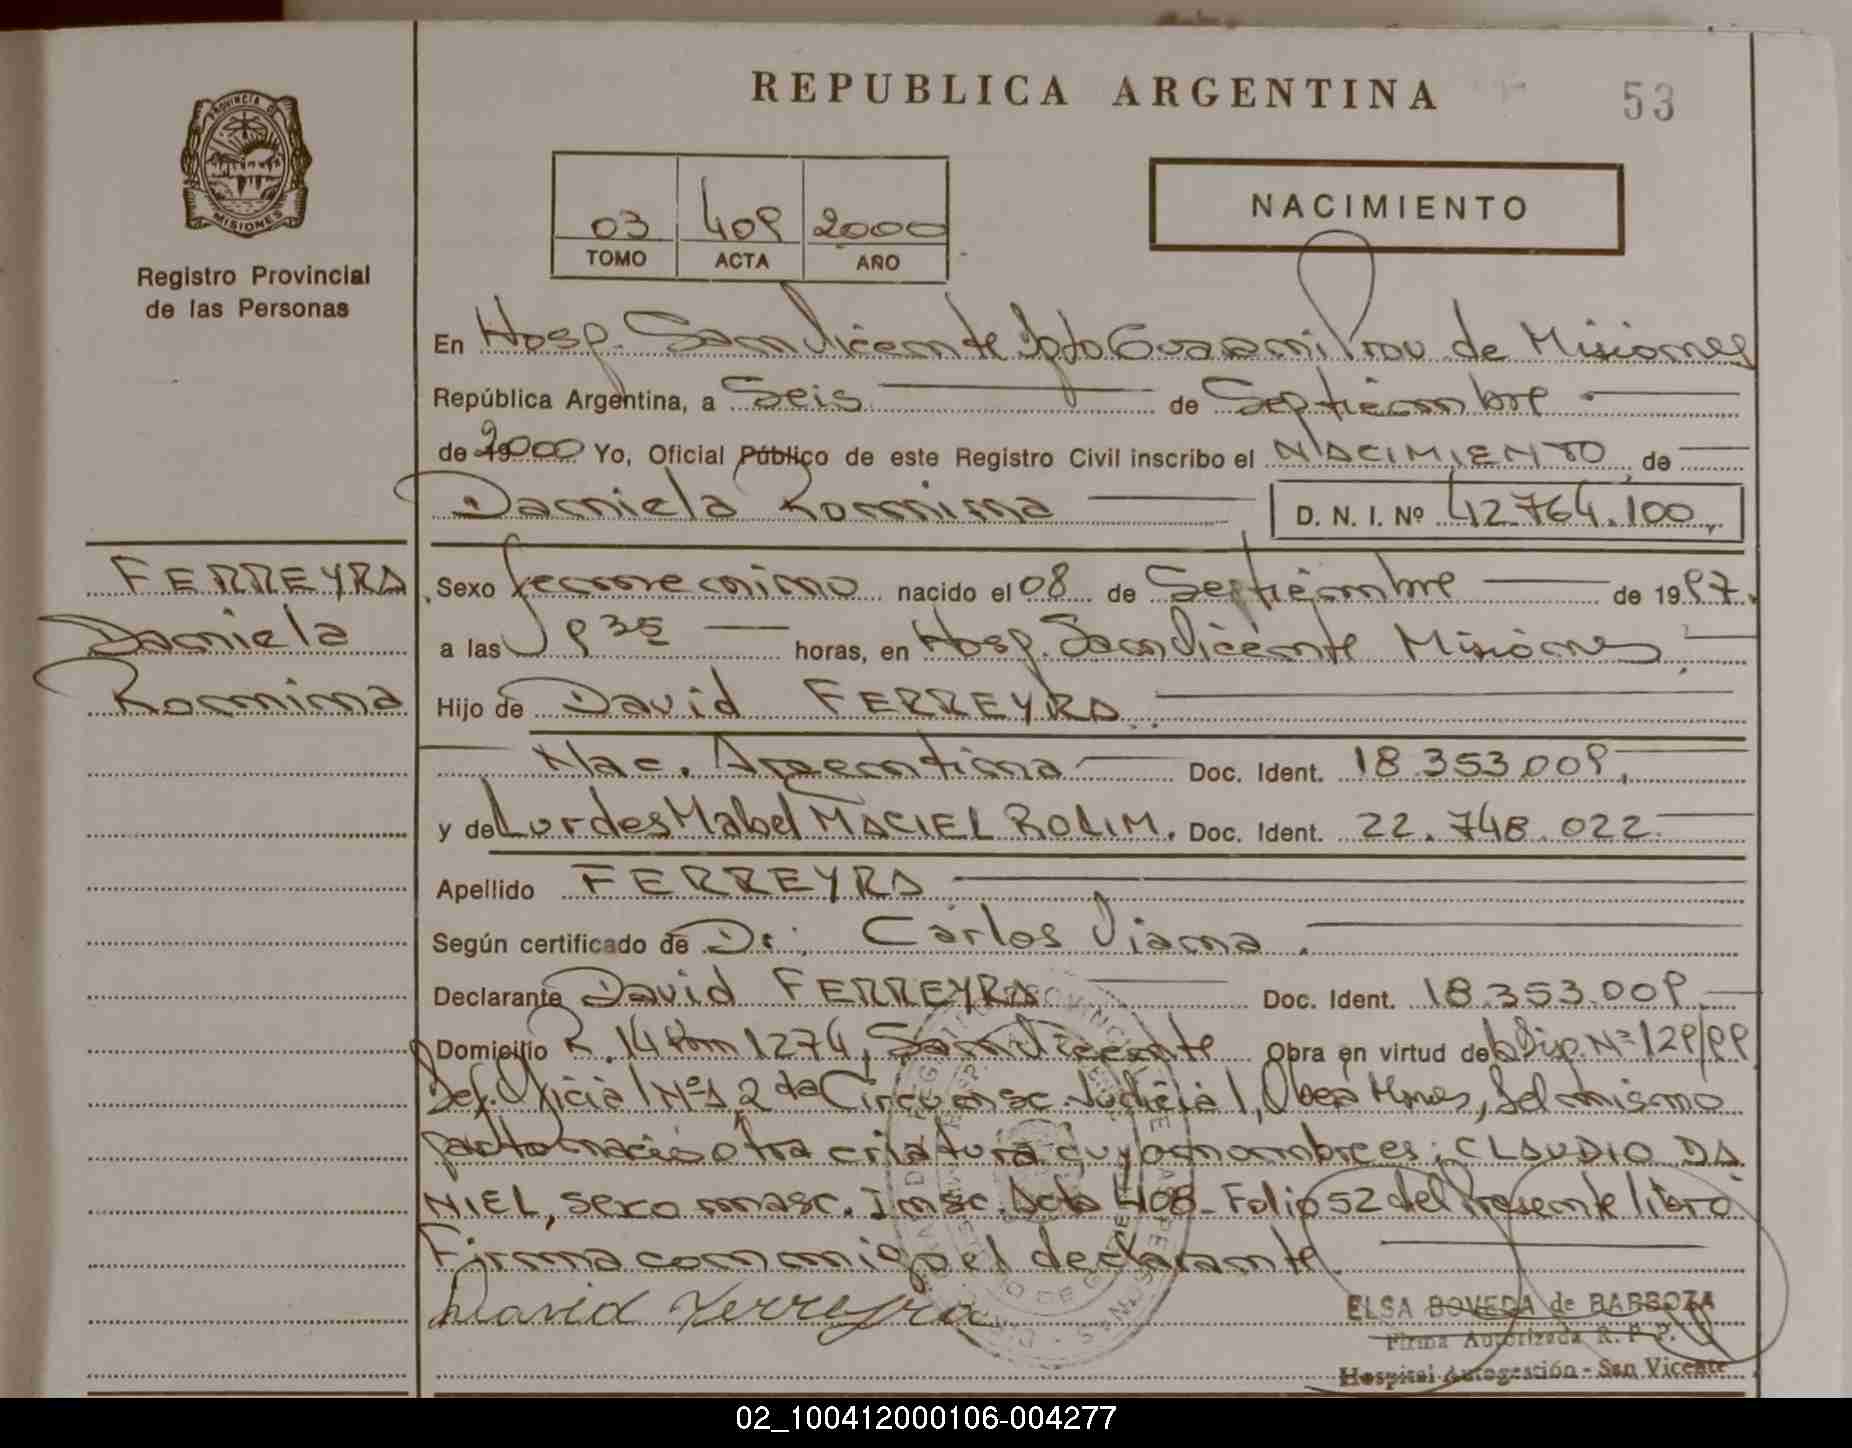 REPUBLICA ARGENTINA
53
PROVINCIA DE
MISIONES
Registro Provincial
de las Personas
03 409 2000
TOMO ACTA AÑO
NACIMIENTO
En Hosp. San Vicente Dpto Guaraní Prov de Misiones
República Argentina, a Seis de Septiembre
de 2000 Yo, Oficial Público de este Registro Civil inscribo el NACIMIENTO de
Daniela Romina D. N. I. Nº 42.764.100,
FERREYRA
Daniela
Romina
Sexo femenino nacido el 08 de Septiembre de 1997.
a las 9 35 horas, en Hosp. San Vicente Misiones
Hijo de David FERREYRA
Nac. Argentina Doc. Ident. 18.353.009,
y de Lurdes Mabel MACIEL ROLIM. Doc. Ident. 22.748.022
Apellido FERREYRA
Según certificado de Dr. Carlos Viana.
Declarante David FERREYRA Doc. Ident. 18.353.009
Domicilio R. 14 Km 1274, San Vicente Obra en virtud de Disp. Nº 129/99
Def. Oficial Nº 1, 2da Circunsc. Judicial, Obera Mnes, del mismo
parto nació otra criatura cuyo nombre es: CLAUDIO DA
NIEL, sexo masc. Insc. Acta 408 - Folio 52 del Presente libro
Firma conmigo el declarante.
David Ferreyra
ELSA BOVEDA de BARBOZA
Firma Autorizada R. P. P.
Hospital Autogestión - San Vicente
02_100412000106-004277